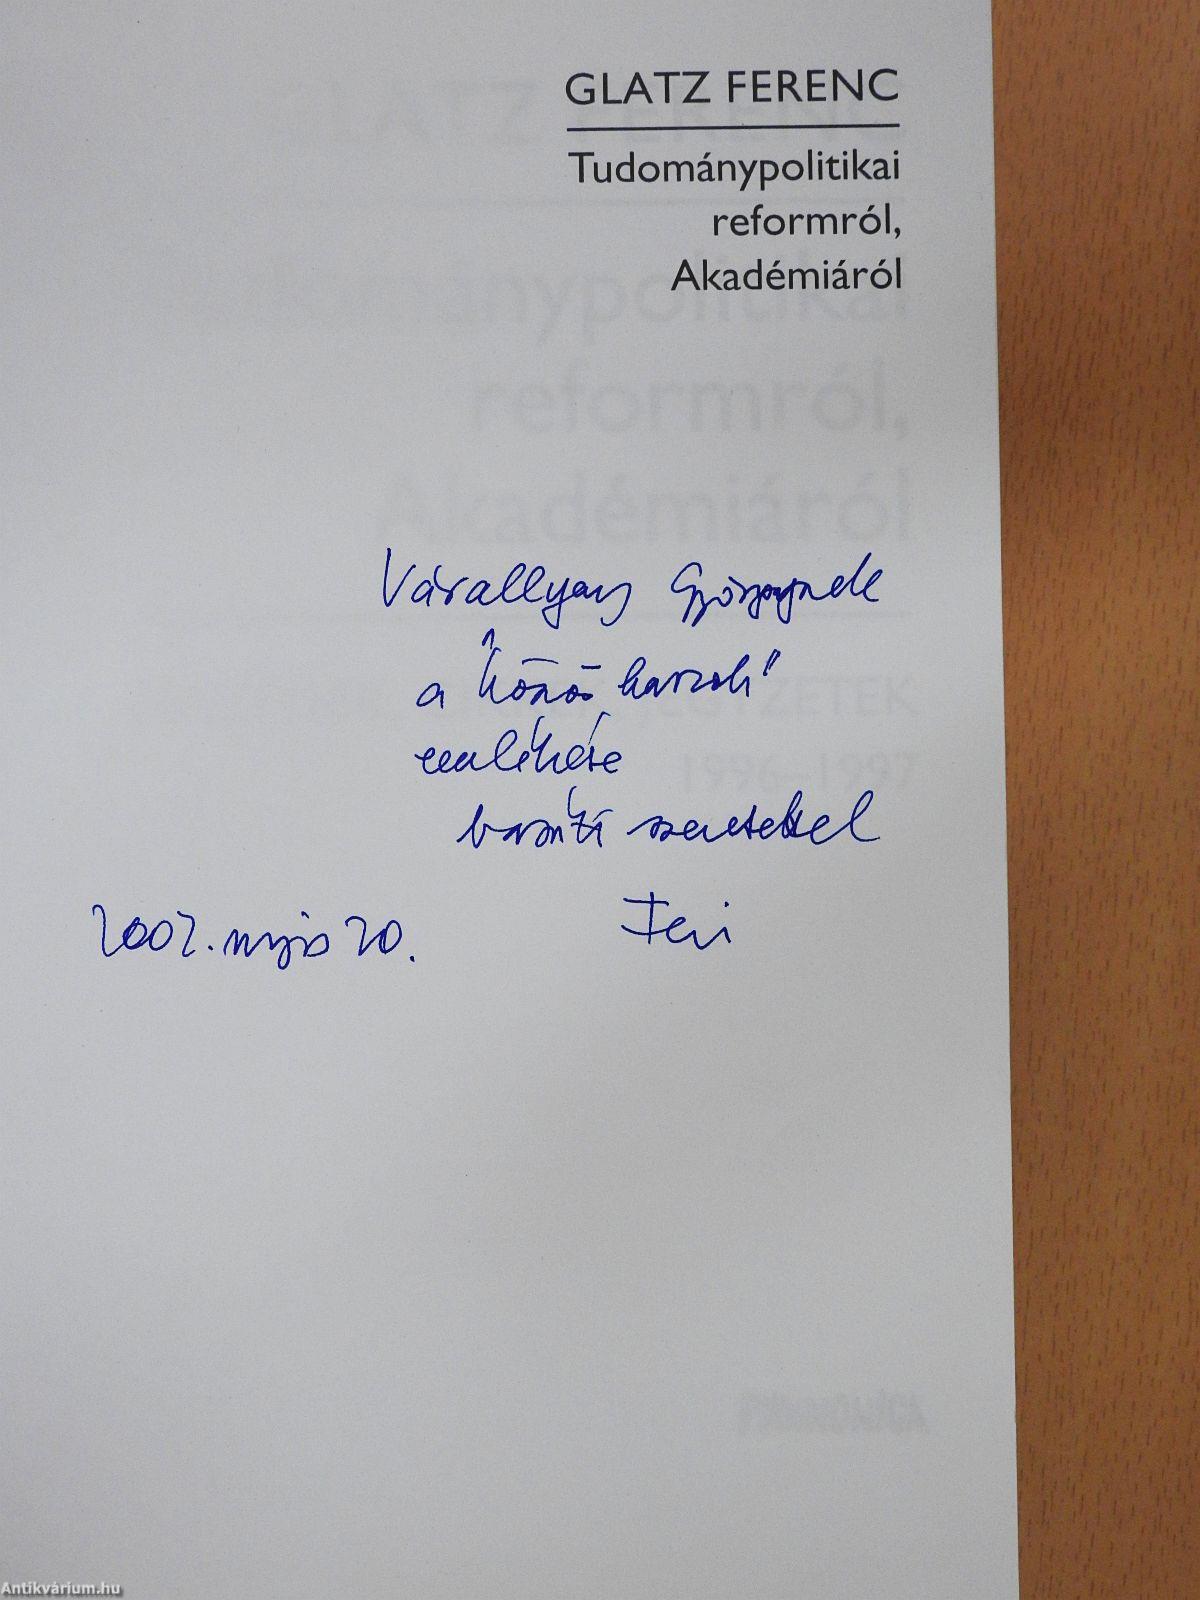 GLATZ FERENC
Tudománypolitikai
reformról,
Akadémiáról
Várallyay Györgynek
a "közös harcok"
emlékére
baráti szeretettel
2002. május 20.
Feri
JEGYZETEK
1996–1997
PANNONICA
Antikvárium.hu